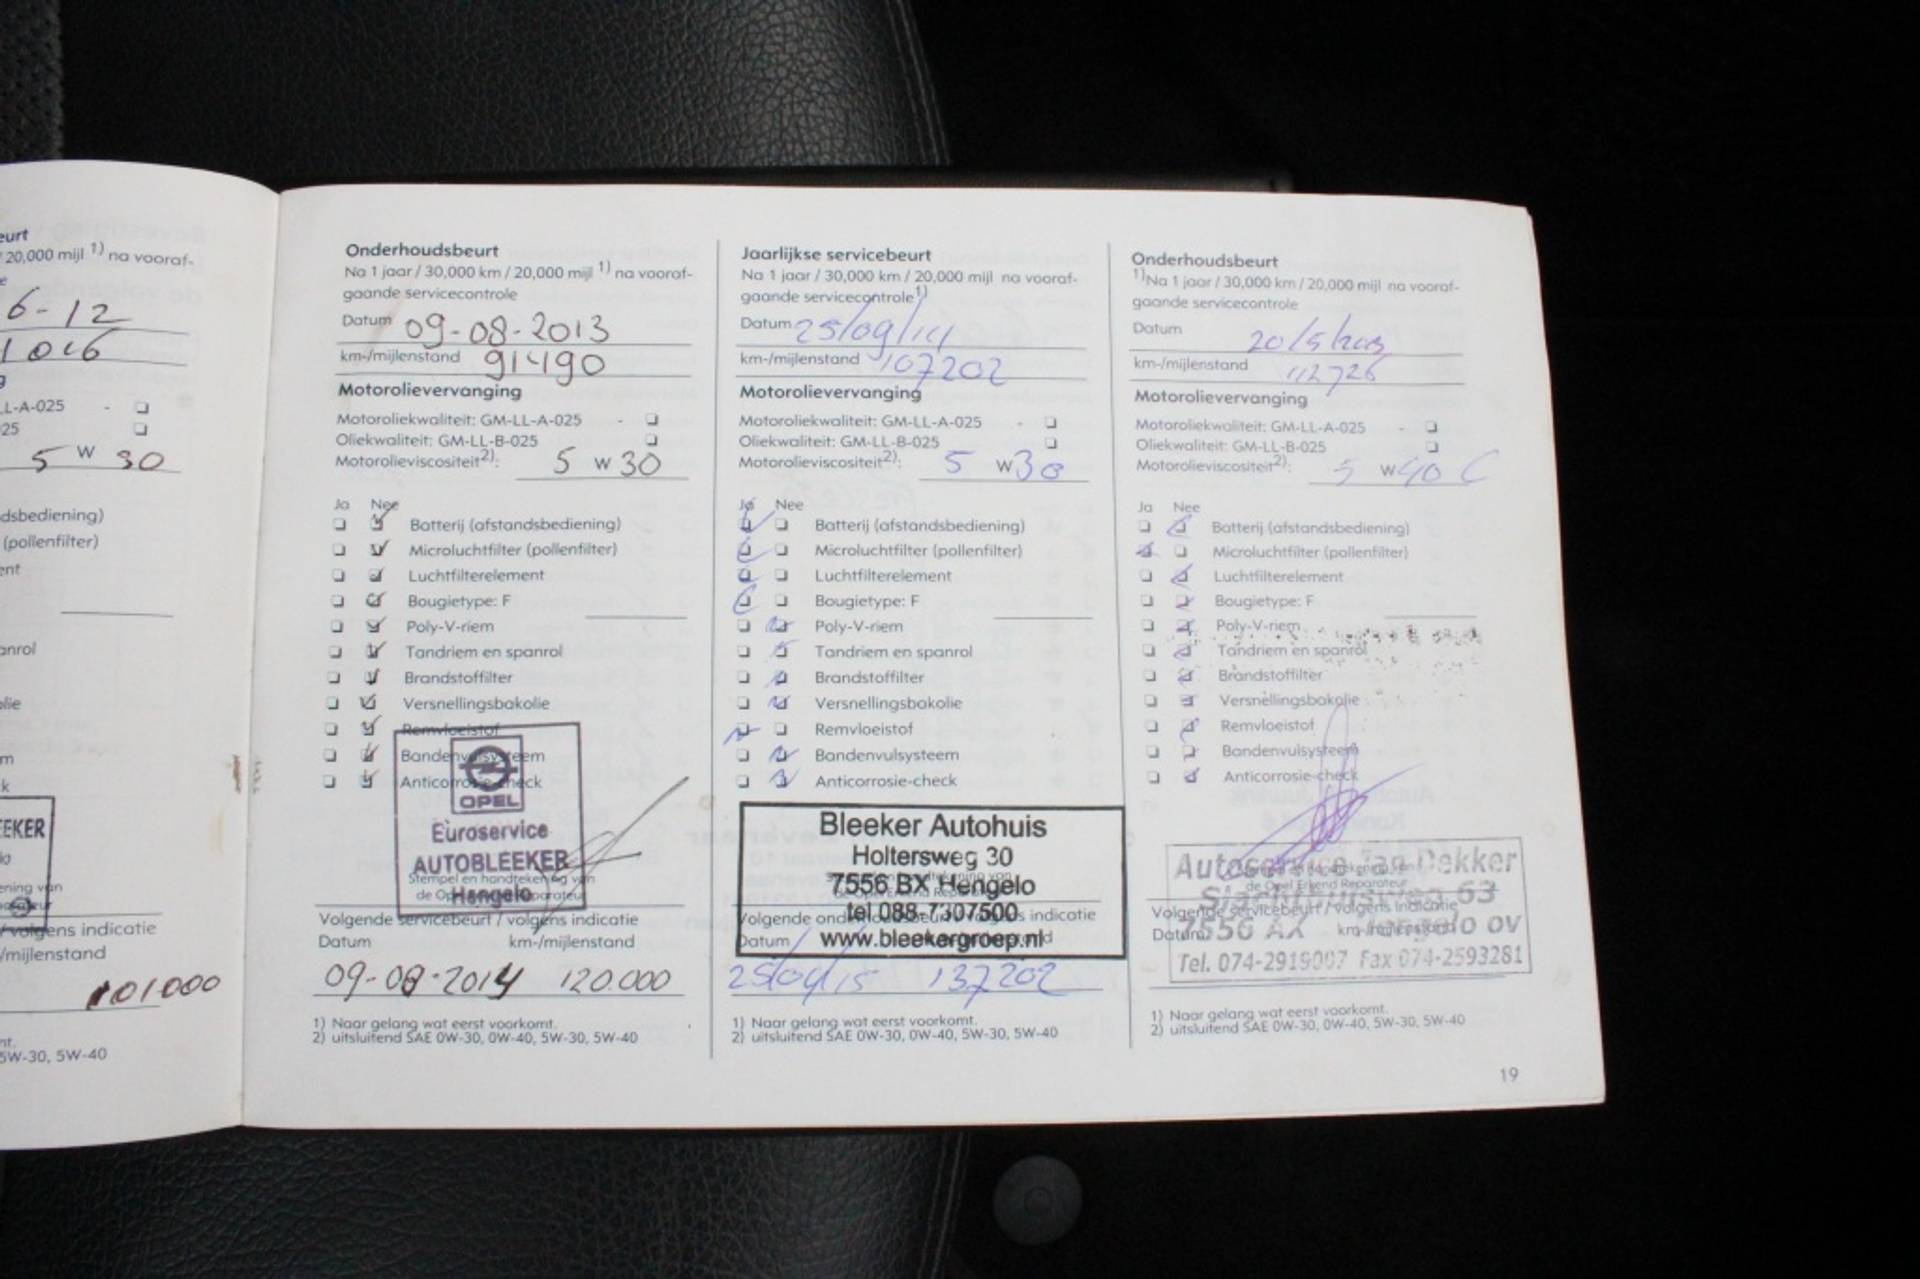 eurt
20,000 mijl 1) na vooraf-
6-12
LL-A-025 -
25
5 W 30
dsbediening)
(pollenfilter)
ent
anrol
olie
m
k
EEKER
volgens indicatie
/mijlenstand
101000
5W-30, 5W-40
Onderhoudsbeurt
Na 1 jaar / 30,000 km / 20,000 mijl 1) na vooraf-
gaande servicecontrole
Datum 09-08-2013
km-/mijlenstand 91490
Motorolievervanging
Motoroliekwaliteit: GM-LL-A-025 -
Oliekwaliteit: GM-LL-B-025
Motorolieviscositeit2): 5 W 30
Ja Nee
Batterij (afstandsbediening)
Microluchtfilter (pollenfilter)
Luchtfilterelement
Bougietype: F
Poly-V-riem
Tandriem en spanrol
Brandstoffilter
Versnellingsbakolie
Remvloeistof
Bandenvulsysteem
Anticorrosie-check
OPEL
Euroservice
AUTOBLEEKER
Stempel en handtekening van
de Opel Erkend Reparateur
Hengelo
Volgende servicebeurt / volgens indicatie
Datum km-/mijlenstand
09-08-2014 120.000
1) Naar gelang wat eerst voorkomt.
2) uitsluitend SAE 0W-30, 0W-40, 5W-30, 5W-40
Jaarlijkse servicebeurt
Na 1 jaar / 30,000 km / 20,000 mijl na vooraf-
gaande servicecontrole1)
Datum 25/09/14
km-/mijlenstand 107202
Motorolievervanging
Motoroliekwaliteit: GM-LL-A-025 -
Oliekwaliteit: GM-LL-B-025
Motorolieviscositeit2): 5 W 30
Ja Nee
Batterij (afstandsbediening)
Microluchtfilter (pollenfilter)
Luchtfilterelement
Bougietype: F
Poly-V-riem
Tandriem en spanrol
Brandstoffilter
Versnellingsbakolie
Remvloeistof
Bandenvulsysteem
Anticorrosie-check
Bleeker Autohuis
Holtersweg 30
7556 BX Hengelo
tel 088-7307500
Volgende onderhoudsbeurt / volgens indicatie
Datum
www.bleekergroep.nl
25/09/15 137202
1) Naar gelang wat eerst voorkomt.
2) uitsluitend SAE 0W-30, 0W-40, 5W-30, 5W-40
Onderhoudsbeurt
1)Na 1 jaar / 30,000 km / 20,000 mijl na vooraf-
gaande servicecontrole
Datum
km-/mijlenstand 112726
Motorolievervanging
Motoroliekwaliteit: GM-LL-A-025 -
Oliekwaliteit: GM-LL-B-025
Motorolieviscositeit2): 5 W 40
Ja Nee
Batterij (afstandsbediening)
Microluchtfilter (pollenfilter)
Luchtfilterelement
Bougietype: F
Poly-V-riem
Tandriem en spanrol
Brandstoffilter
Versnellingsbakolie
Remvloeistof
Bandenvulsysteem
Anticorrosie-check
Autoservice Jan Dekker
de Opel Erkend Reparateur
Slachthuisweg 63
Volgende servicebeurt / volgens indicatie
Datum km-/mijlenstand
7556 AX Hengelo ov
Tel. 074-2919007 Fax 074-2593281
1) Naar gelang wat eerst voorkomt.
2) uitsluitend SAE 0W-30, 0W-40, 5W-30, 5W-40
19